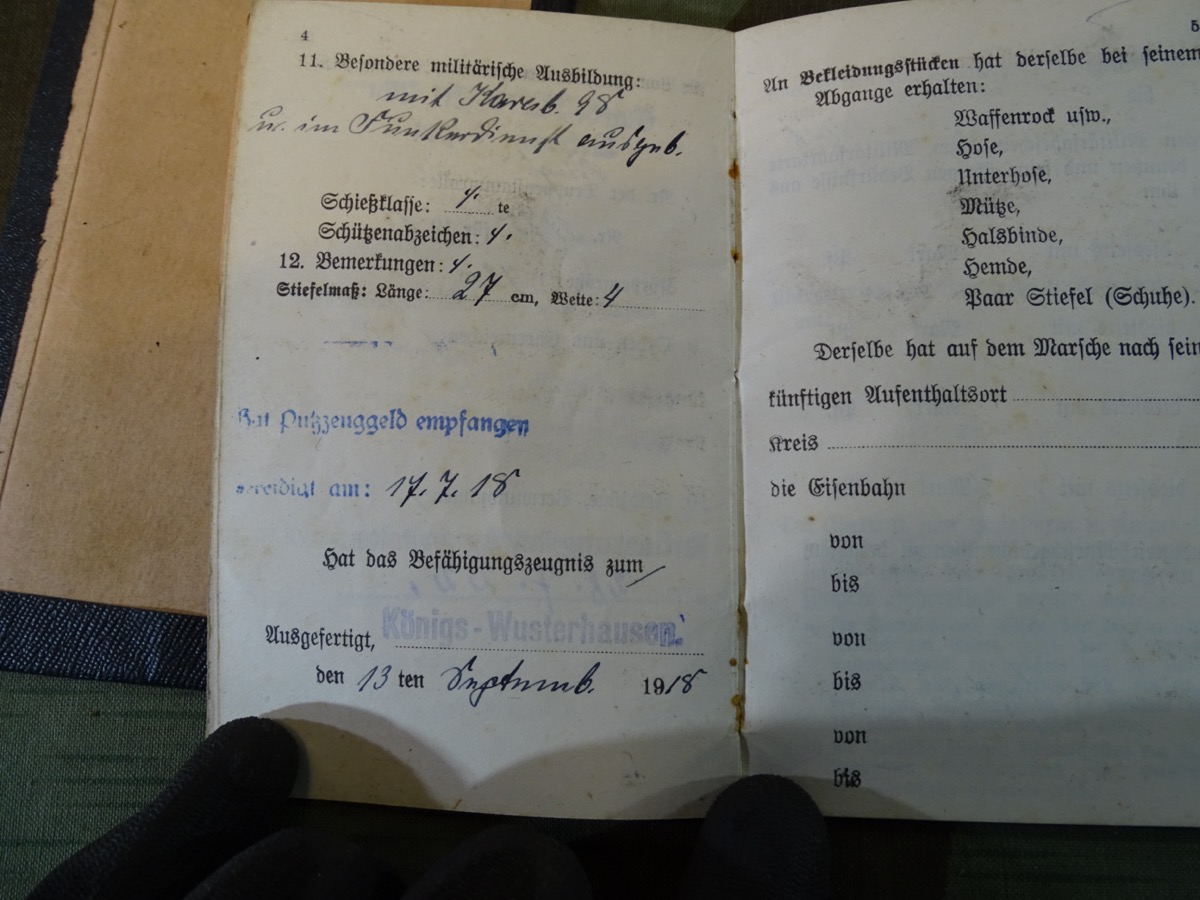 4
11. Besondere militärische Ausbildung:
mit Karab. 98
u. im Funkerdienst ausgeb.
Schießklasse: te
Schützenabzeichen:
12. Bemerkungen:
Stiefelmaß: Länge: 27 cm, Weite: 4
Hat Putzzeuggeld empfangen
vereidigt am: 17. 7. 18
Hat das Befähigungszeugnis zum
Ausgefertigt, Königs-Wusterhausen.
den 13 ten Septemb. 1918
5
An Bekleidungsstücken hat derselbe bei seinem
Abgange erhalten:
Waffenrock usw.,
Hose,
Unterhose,
Mütze,
Halsbinde,
Hemde,
Paar Stiefel (Schuhe).
Derselbe hat auf dem Marsche nach sein
künftigen Aufenthaltsort
Kreis
die Eisenbahn
von
bis
von
bis
von
bis